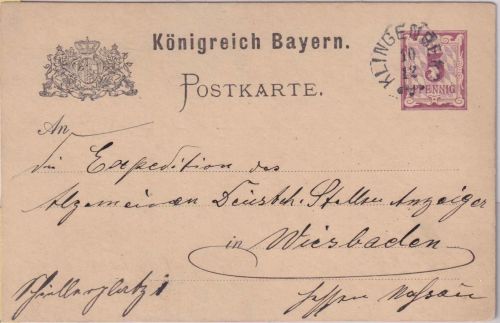 Königreich Bayern.
POSTKARTE.
KLINGENBG
10
12
5
PFENNIG
An
die Expedition des
Algemeinen Deutsch. Stellen Anzeiger
in Wiesbaden
Schillerplatz 1
Hessen Nassau